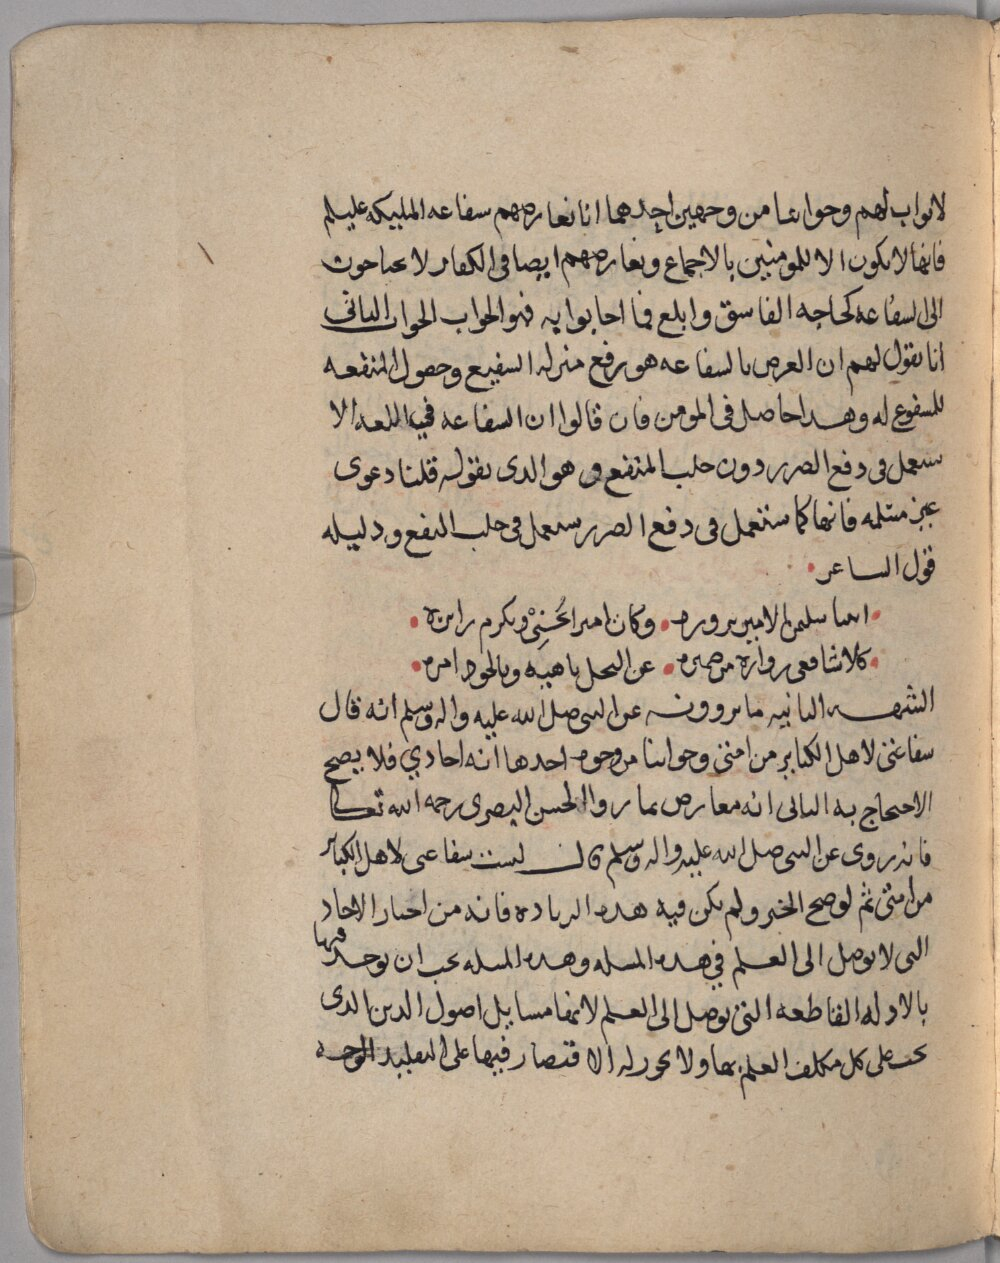 لا ثواب لهم وجوابنا من وجهين احدهما انا نعارضهم بشفاعه المليكه عليلم
فانها لا تكون الا للمومنين بالاجماع ونعارضهم ايضا في الكفار لاحتياجون
الى الشفاعه كحاجه الفاسق وابلغ فما اجابوا به فهو الجواب الجواب الثاني
انا نقول لهم ان الغرض بالشفاعه هو رفع منزله الشفيع وحصول المنفعه
للمشفوع له وهذا حاصل في المومن فان قالوا ان الشفاعه في اللغه الا
تستعمل في دفع الضرر دون جلب المنتفع وهو الذي نقوله قلنا دعوى
غير مسلمه فانها كما تستعمل في دفع الضرر تستعمل في جلب النفع ودليله
قول الشاعر
اتينا سليمن الامير نزوره وكان اميرا يحبى ويكرم زايره
كلا شافعي زواره من ضميره عن البخل ناهيه وبالجود امره
الشبهه الثانيه ما يروونه عن النبي صلى الله عليه واله وسلم انه قال
شفاعتي لاهل الكباير من امتي وجوابنا من وجوه احدها انه احادي فلا يصح
الاحتجاج به الثاني انه معارض بما رواه الحسن البصري رحمه الله تعالى
فانه روى عن النبي صلى الله عليه واله وسلم قال ليست شفاعتي لاهل الكباير
من امتي ثم لو صح الخبر ولم يكن فيه هذه الزياده فانه من اخبار الاحاد
التي لا توصل الى العلم في هذه المسله وهذه المسله يجب ان يوخذ فيها
بالادله القاطعه التي توصل الى العلم لانها مسايل اصول الدين الذي
يجب على كل مكلف العلم بها ولا يجوز له الاقتصار فيها على التقليد الوجه